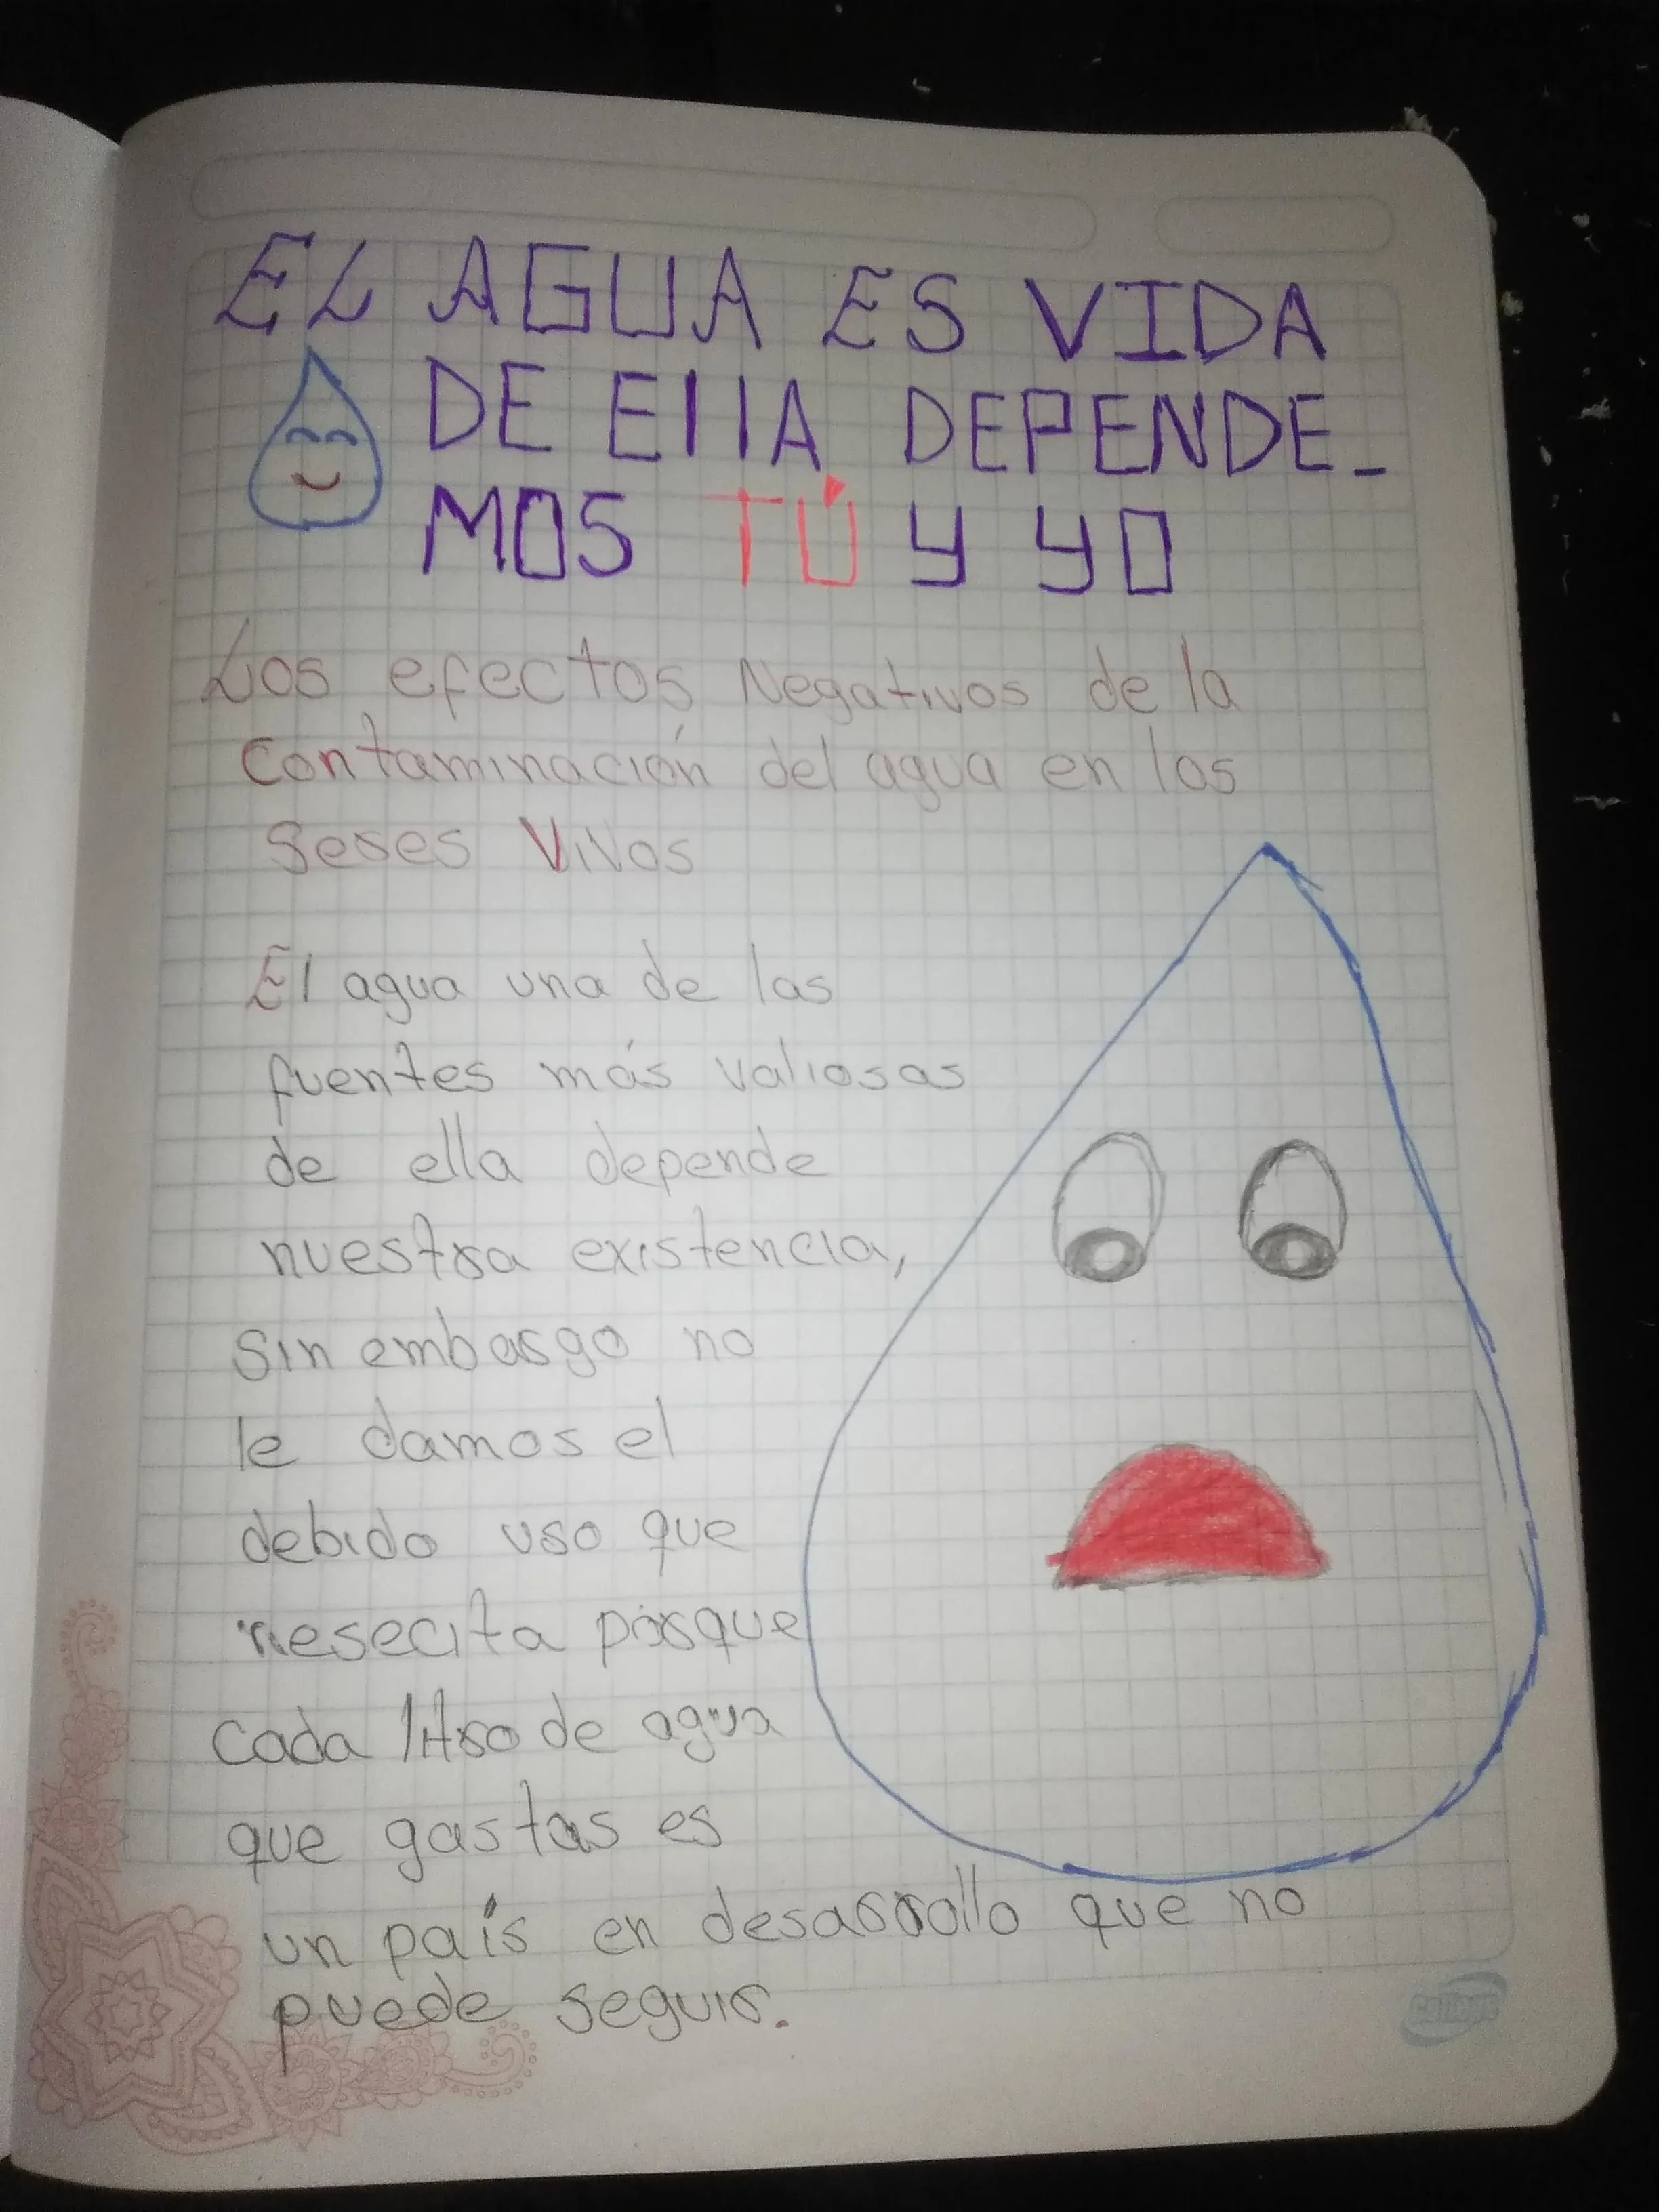 EL AGUA ES VIDA
DE EllA DEPENDE-
MOS TÚ y yO
Los efectos Negativos de la
Contaminación del agua en los
Seres Vivos
El agua una de las
fuentes más valiosas
de ella depende
nuestra existencia,
Sin embargo no
le damos el
debido uso que
nesecita porque
Cada litro de agua
que gastas es
un país en desarrollo que no
puede seguir.